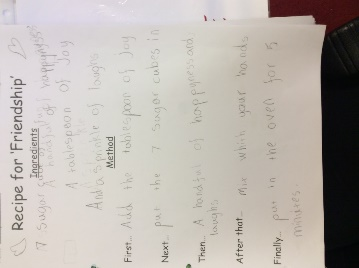 Recipe for 'Friendship'
Ingredients
7 sugar cubes
A handful of happyness
A tablespoon of Joy
And a sprinkle of laughs
Method
First... Add the tablespoon of Joy
Next... put the 7 sugar cubes in
Then... A handful of happyness and
laughs
After that... mix which your hands
Finally... put in the oven for 5
minutes.